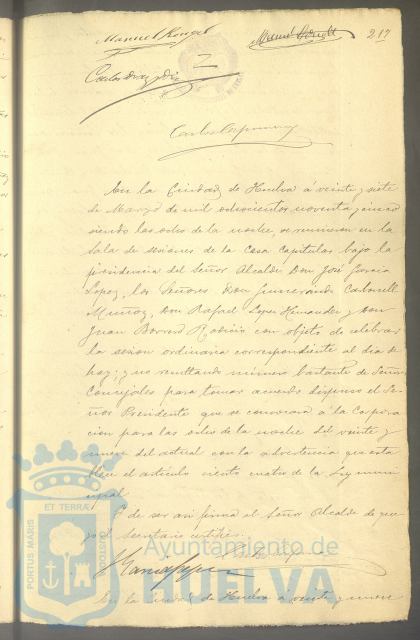 Manuel
217
Carlos
En la Ciudad de Huelva á veinte y siete
de Marzo de mil ochocientos noventa y cinco
siendo las ocho de la noche, se reunieron en la
Sala de sesiones de la Casa Capitular bajo la
presidencia del Señor Alcalde Don José Garcia
Lopez, los Señores Don Gumersindo Carbonell
Muñoz, Don Rafael Lopez Hernandez y Don
Juan Borrero con objeto de celebrar
la sesion ordinaria correspondiente al dia de
hoy; y no resultando número bastante de Señores
Concejales para tomar acuerdo dispuso el Se-
ñor Presidente que se convocará á la Corpora
cion para las ocho de la noche del veinte y
nueve del actual con la advertencia que esta
blece el artículo ciento cuatro de la Ley muni
cipal.
Y de ser asi firma el Señor Alcalde de que
yo el Secretario certifico.
En la Ciudad de Huelva á veinte y nueve
PORTUS MARIS
ET TERRÆ
CUSTODIA
Ayuntamiento de
HUELVA